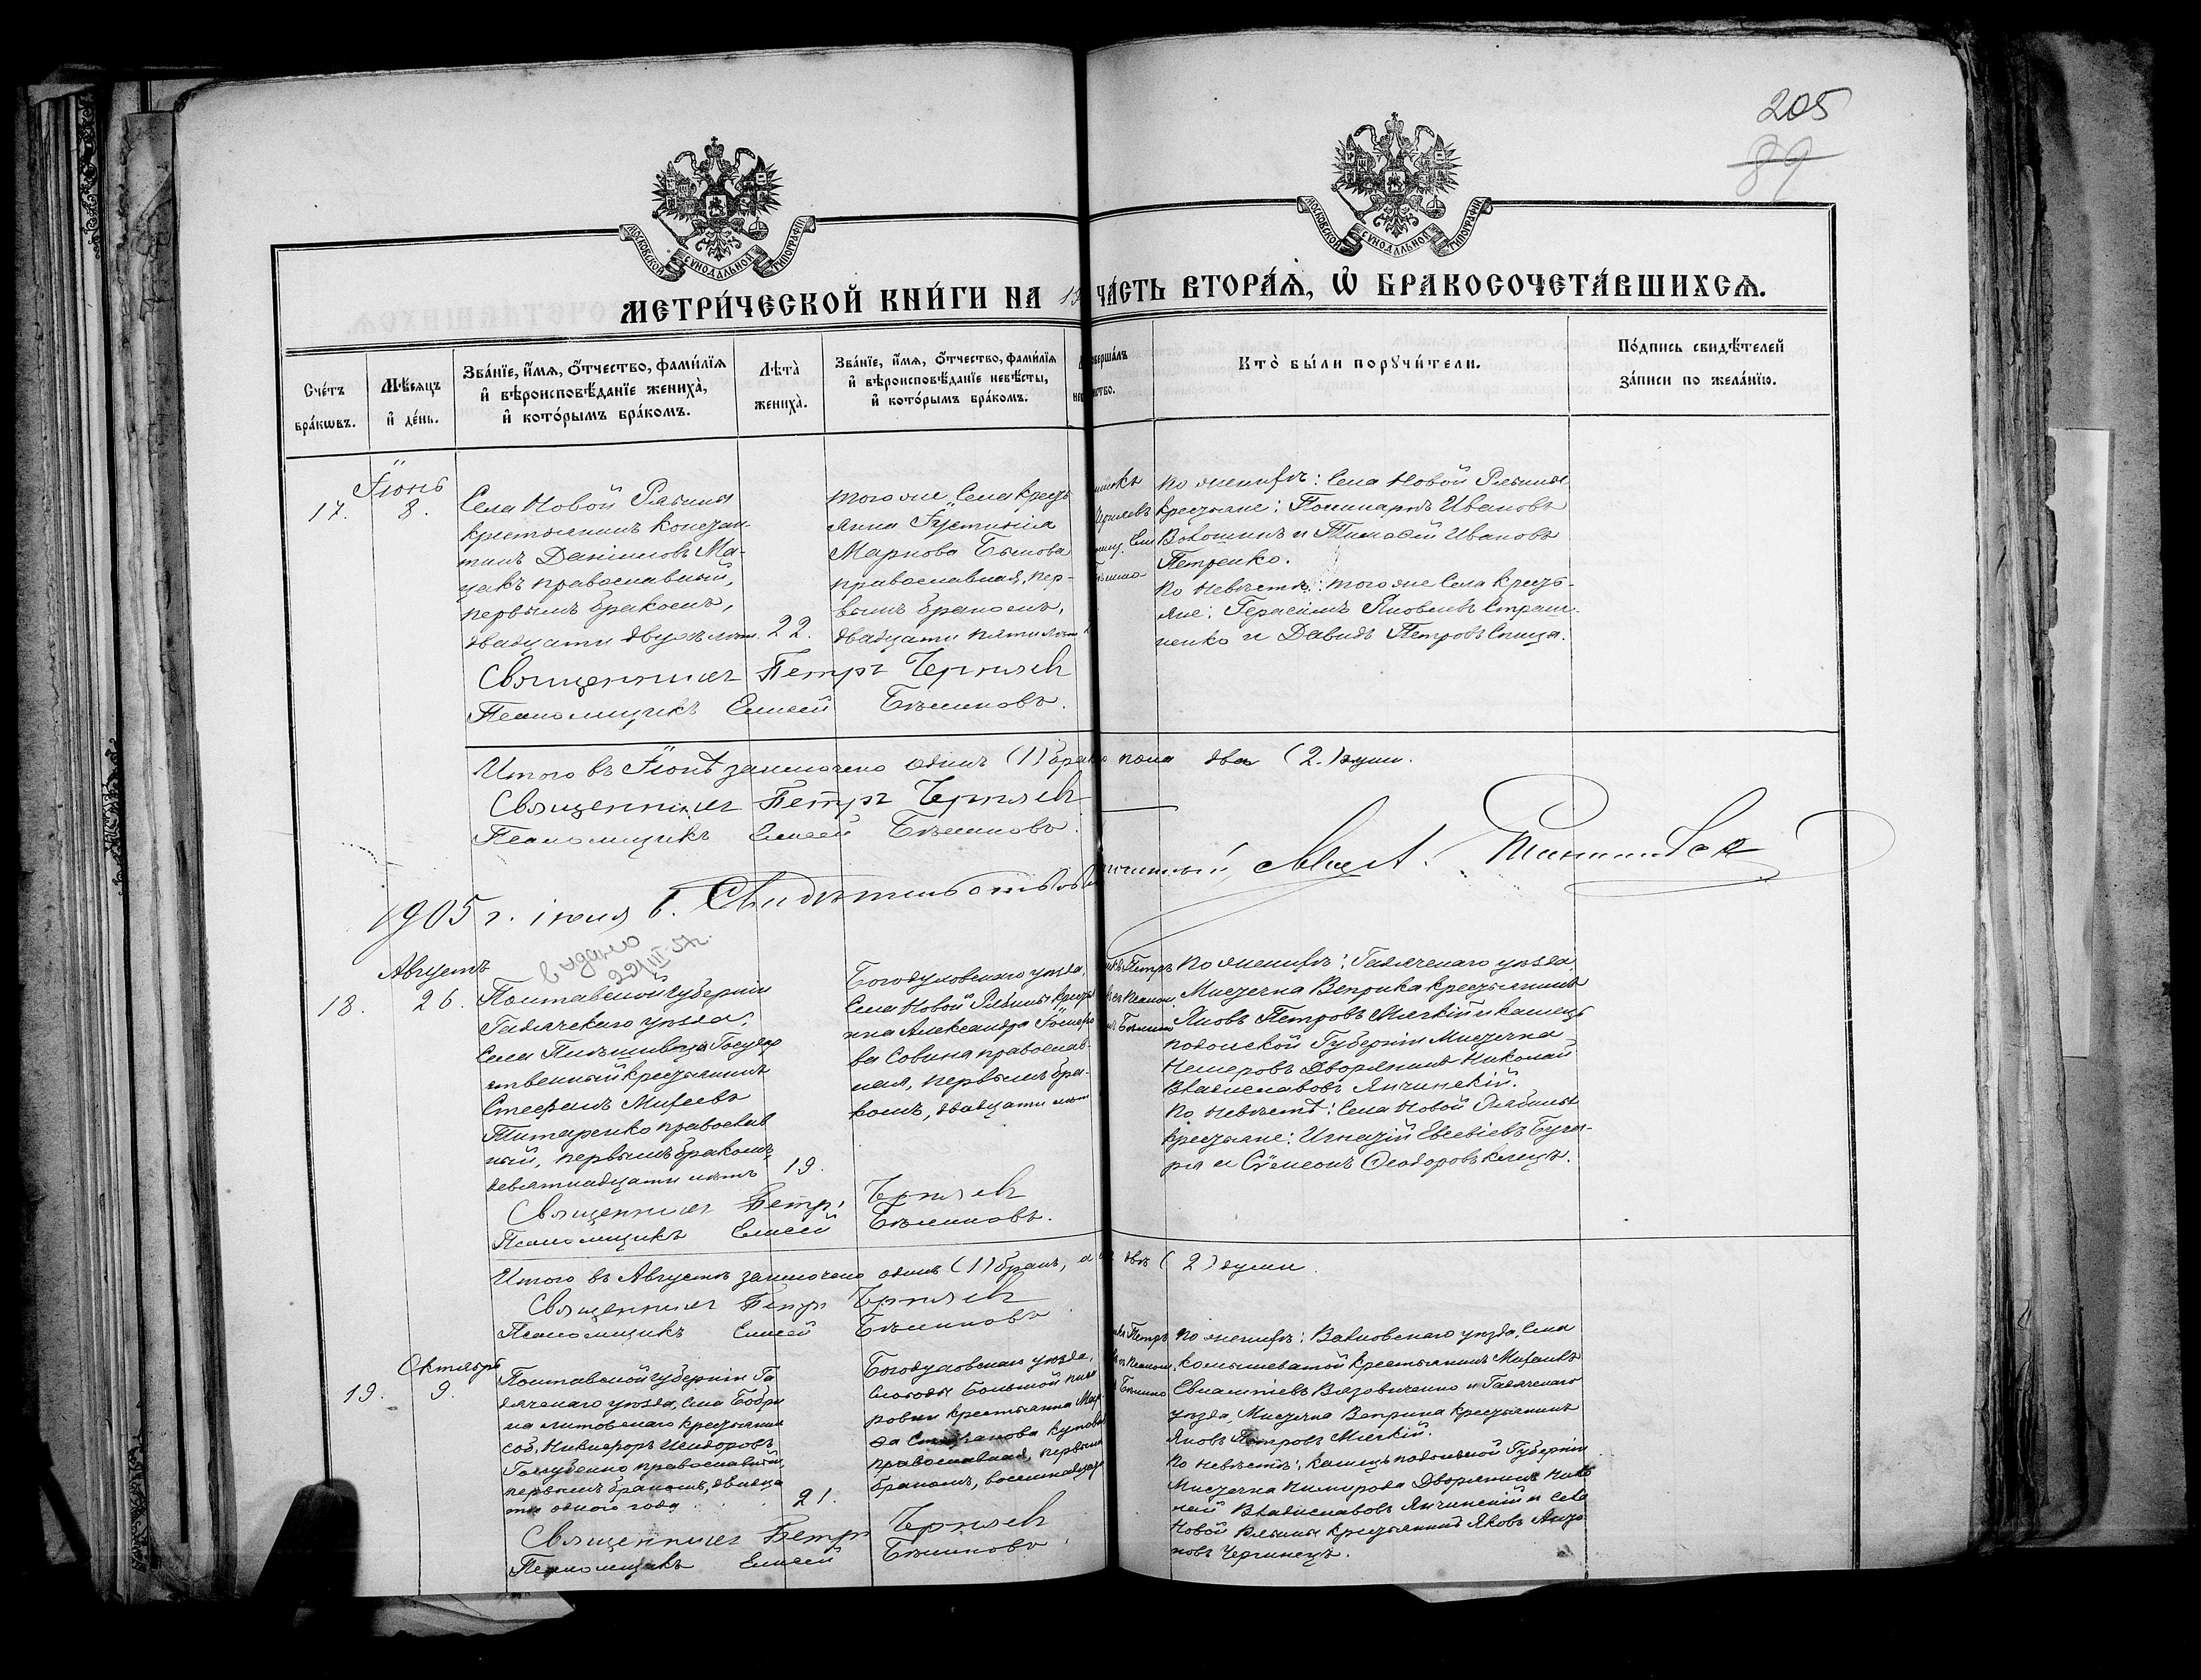 205
89
МОСКОВСКОЙ СѴНОДАЛЬНОЙ ТИПОГРАФІИ
МОСКОВСКОЙ СѴНОДАЛЬНОЙ ТИПОГРАФІИ
МЕТРИ́ЧЕСКОЙ КНИ́ГИ НА 19 ЧА́СТЬ ВТОРА́Ѧ, Ѡ҆ БРАКОСОЧЕТА́ВШИХСѦ.
Сче́тъ бра́кѡвъ.
Мѣ́сѧцъ и҆ де́нь.
Зва́нїе, и҆́мѧ, ѻ҆́тчество, фами́лїѧ и҆ вѣроисповѣ́данїе жениха̀, и҆ кото́рымъ бра́комъ.
Лѣта̀ жениха̀.
Зва́нїе, и҆́мѧ, ѻ҆́тчество, фами́лїѧ и҆ вѣроисповѣ́данїе невѣ́сты, и҆ кото́рымъ бра́комъ.
соверша́лъ
Кто̀ бы́ли порꙋчи́тели.
По́дпись свидѣ́телей за́писи по жела́нїю.
17.
Іюнь
8.
Села Новой Рябины
крестьянинъ Констан-
тинъ Даніиловъ Ма-
цакъ православный,
первымъ бракомъ,
двадцати двухъ лѣтъ.
22.
того же Села кресть
янка Іустинія
Маркова Бѣлова
православная, пер-
вымъ бракомъ,
двадцати пяти лѣтъ
По женихѣ: Села Новой Рябины
крестьяне: Поликарпъ Ивановъ
Волошинъ и Тимофей Ивановъ
Петренко.
По невѣстѣ: того же Села кресть-
яне: Герасимъ Яковлевъ Страш-
ненко и Давидъ Петровъ Спица.
Священникъ Петръ Черняевъ
Псаломщикъ Елисей Бѣликовъ.
Итого въ Іюнѣ заключено одинъ (1) бракъ пола два (2.) души.
Священникъ Петръ Черняевъ
Псаломщикъ Елисей Бѣликовъ.
1905 г. іюля 6. Свидѣтельствовалъ
выдано
22/III 57г.
18.
Августъ
26.
Полтавской губерніи
Гадячскаго уѣзда,
Села Государ
ственный крестьянинъ
Стефанъ Михеевъ
Титаренко православ
ный, первымъ бракомъ,
девятнадцати лѣтъ
19.
Богодуховскаго уѣзда,
Села Новой Рябины кресть
янка Александра
ва Совина православ-
ная, первымъ бра-
комъ, двадцати лѣтъ
По женихѣ: Гадячскаго уѣзда,
Мѣстечка Веприка крестьянинъ
Яковъ Петровъ Мягкій и
подольской Губерніи Мѣстечка
Немировъ Дворянинъ Николай
Владиславовъ Янчинскій.
По невѣстѣ: Села Новой Рябины
крестьяне: Игнатій Евсевіевъ
и Сѵмеонъ Ѳеодоровъ
Священникъ Петръ Черняевъ
Псаломщикъ Елисей Бѣликовъ.
Итого въ Августѣ заключено одинъ (1) бракъ, а двѣ (2) души.
Священникъ Петръ Черняевъ
Псаломщикъ Елисей Бѣликовъ
19.
Октябрь
9.
Полтавской губерніи Га
дячскаго уѣзда, Села Бобри
ка литовскаго крестьянин
соб. Никифоръ Исидоровъ
Голубенко православный,
первымъ бракомъ, двадца
ти одного года
21.
Богодуховскаго уѣзда,
слободы Большой писа
ровки крестьянка Мар
ѳа Стефанова
православная, первымъ
бракомъ, восемнадцати
По женихѣ: Валковскаго уѣзда, Села
Комышеватой крестьянинъ Михаилъ
и Гадячскаго
уѣзда, Мѣстечка Веприка крестьянинъ
Яковъ Петровъ Мягкій.
По невѣстѣ: подольской Губерніи
Мѣстечка Нимирова Дворянинъ Нико
лай Владиславовъ Янчинскій и Села
Новой Рябины крестьянинъ Яковъ Анто
новъ Чернинецъ.
Священникъ Петръ Черняевъ
Псаломщикъ Елисей Бѣликовъ.